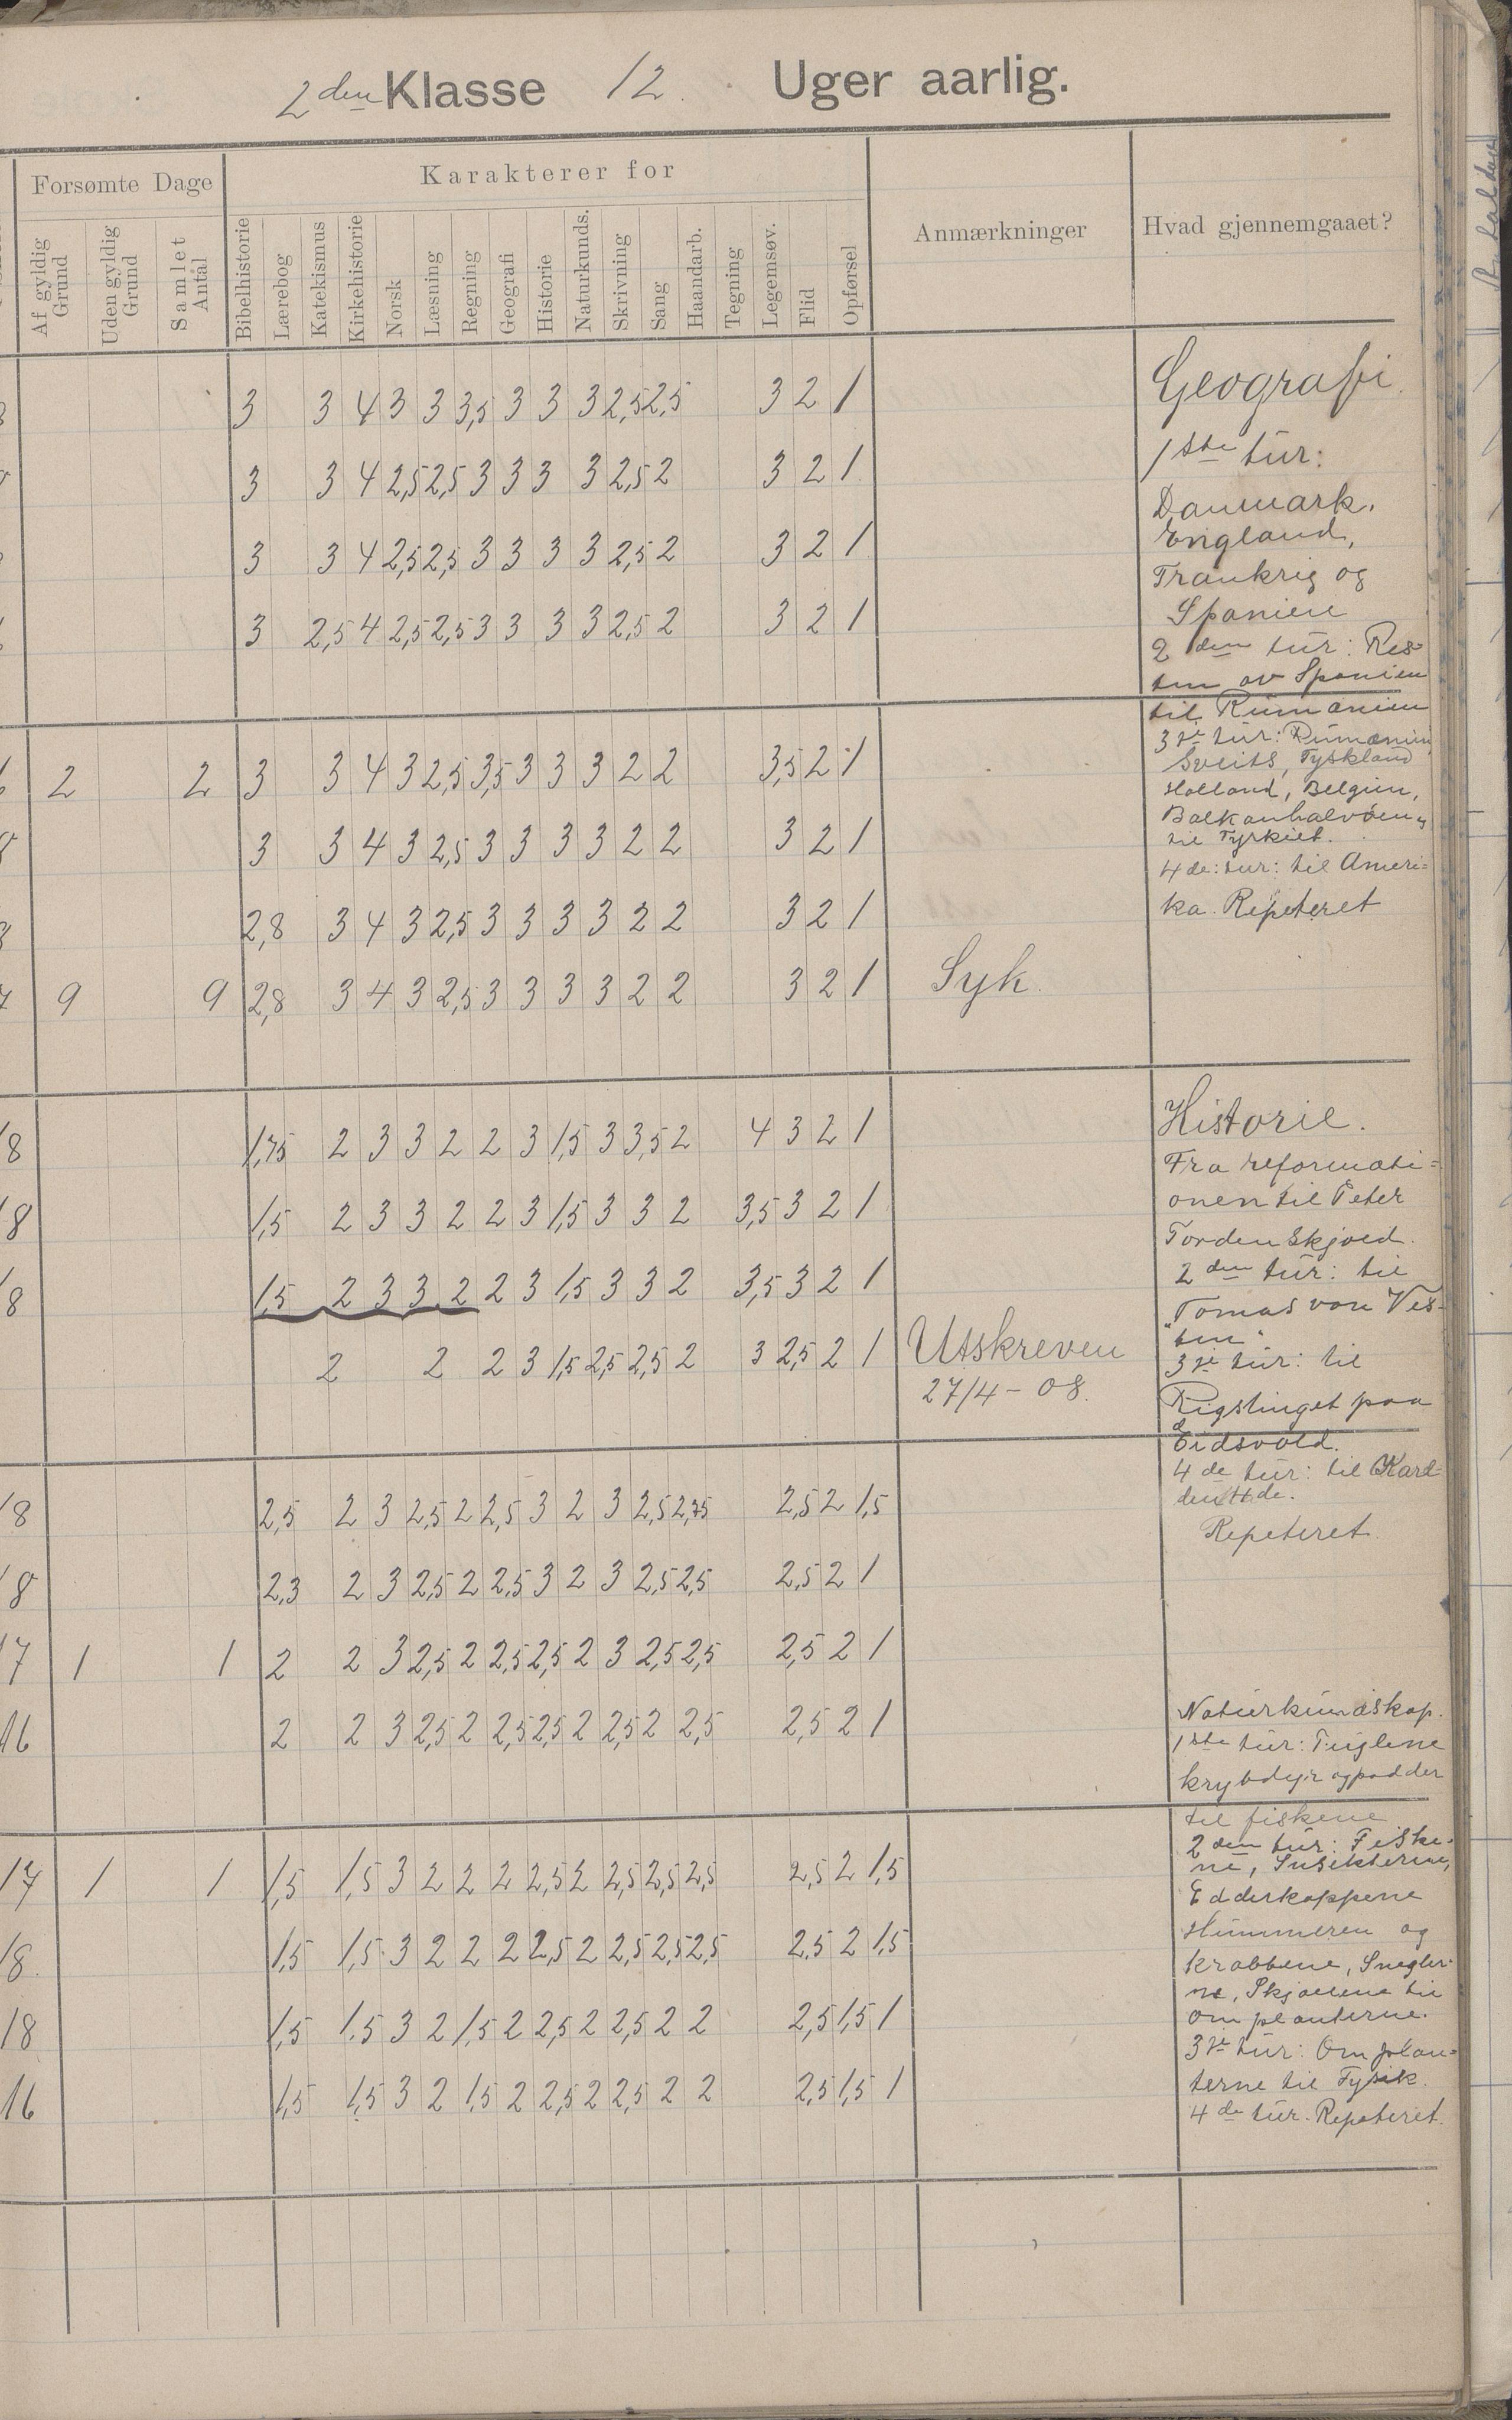 2den Klasse 12 Uger aarlig.
Forsømte Dage Karakterer for Anmærkninger Hvad gjennemgaaet?
Af gyldig Grund
Uden gyldig Grund
Samlet Antal
Bibelhistorie
Lærebog
Katekismus
Kirkehistorie
Norsk
Læsning
Regning
Geografi
Historie
Naturkunds.
Skrivning
Sang
Haandarb.
Tegning
Legemsøv.
Flid
Opførsel
3 3 4 3 3 3,5 3 3 3 2,5 2,5 3 2 1
3 3 4 2,5 2,5 3 3 3 3 2,5 2 3 2 1
3 3 4 2,5 2,5 3 3 3 3 2,5 2 3 2 1
3 2,5 4 2,5 2,5 3 3 3 3 2,5 2 3 2 1
2 2 3 3 4 3 2,5 3,5 3 3 3 2 2 3,5 2 1
3 3 4 3 2,5 3 3 3 3 2 2 3 2 1
2,8 3 4 3 2,5 3 3 3 3 2 2 3 2 1
9 9 2,8 3 4 3 2,5 3 3 3 3 2 2 3 2 1 Syk.
18 1,75 2 3 3 2 2 3 1,5 3 3,5 2 4 3 2 1
18 1,5 2 3 3 2 2 3 1,5 3 3 2 3,5 3 2 1
18 1,5 2 3 3 2 2 3 1,5 3 3 2 3,5 3 2 1
2 2 2 3 1,5 2,5 2,5 2 3 2,5 2 1 Utskreven
27/4 - 08.
18 2,5 2 3 2,5 2 2,5 3 2 3 2,5 2,75 2,5 2 1,5
18 2,3 2 3 2,5 2 2,5 3 2 3 2,5 2,5 2,5 2 1
17 1 1 2 2 3 2,5 2 2,5 2,5 2 3 2,5 2,5 2,5 2 1
16 2 2 3 2,5 2 2,5 2,5 2 2,5 2 2,5 2,5 2 1
17 1 1 1,5 1,5 3 2 2 2 2,5 2 2,5 2,5 2,5 2,5 2 1,5
18. 1,5 1,5 3 2 2 2 2,5 2 2,5 2,5 2,5 2,5 2 1,5
18 1,5 1,5 3 2 1,5 2 2,5 2 2,5 2 2 2,5 1,5 1
16 1,5 1,5 3 2 1,5 2 2,5 2 2,5 2 2 2,5 1,5 1
Geografi.
1ste tur:
Danmark.
England,
Frankrig og
Spanien
2den tur: Res-
ten av Spanien
til Rumænien
3je tur: Rumænien
Sveits, Tyskland
Holland, Belgien,
Balkanhalvøen
til Tyrkiet.
4de: tur: til Ameri=
ka. Repeteret
Historie.
Fra reformati=
onen til Peter
Tordenskjold.
2den tur: til
"Tomas von Ves-
ten"
3je tur: til
Rigstinget paa
Eidsvold.
4de tur: til Karl=
den 14de.
Repeteret.
Naturkundskap.
1ste tur: Fuglene
krybdyr og padder
til fiskene
2den tur: Fiske-
ne, Insekterne,
Edderkoppene
Hummeren og
krabbene, Snegler-
ne, Skjællene til
om planterne.
3je tur: Om plan=
terne til Fysik.
4de tur. Repeteret.